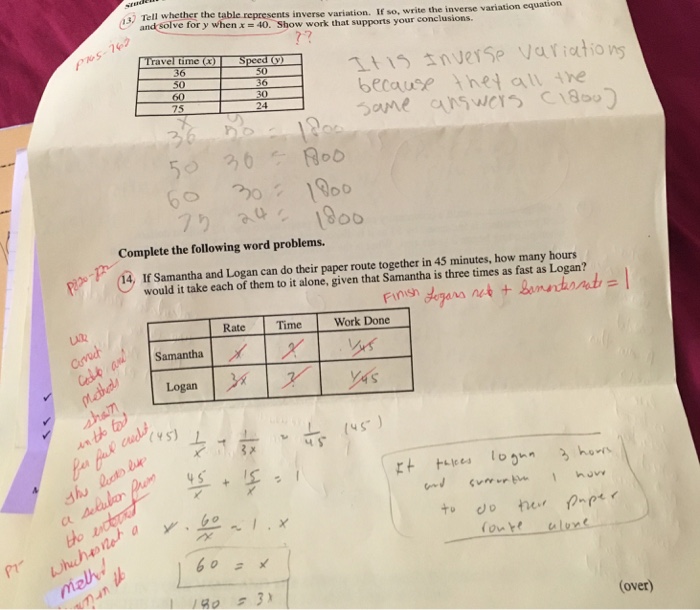 13. Tell whether the table represents inverse variation. If so, write the inverse variation equation
and solve for y when x = 40. Show work that supports your conclusions.
??
Travel time (x) Speed (y)
36 50
50 36
60 30
75 24
It is Inverse Variations
because they all the
same answers (1800)
x y
36 50 = 1800
50 36 = 1800
60 30 = 1800
75 24 = 1800
Complete the following word problems.
14. If Samantha and Logan can do their paper route together in 45 minutes, how many hours
would it take each of them to it alone, given that Samantha is three times as fast as Logan?
Finish Logans rate + Samantha rate = 1
Rate Time Work Done
Samantha x ? 1/45
Logan 3x ? 1/45
use
correct
table and
methods
shown
in the text
for full credit
This looks like
a solution from
the internet
which is not a
method
(45) 1/x + 1/3x = 1/45 (45)
45/x + 15/x = 1
x · 60/x = 1 · x
60 = x
180 = 3x
It takes logan 3 hours
and samantha 1 hour
to do their paper
route alone
(over)